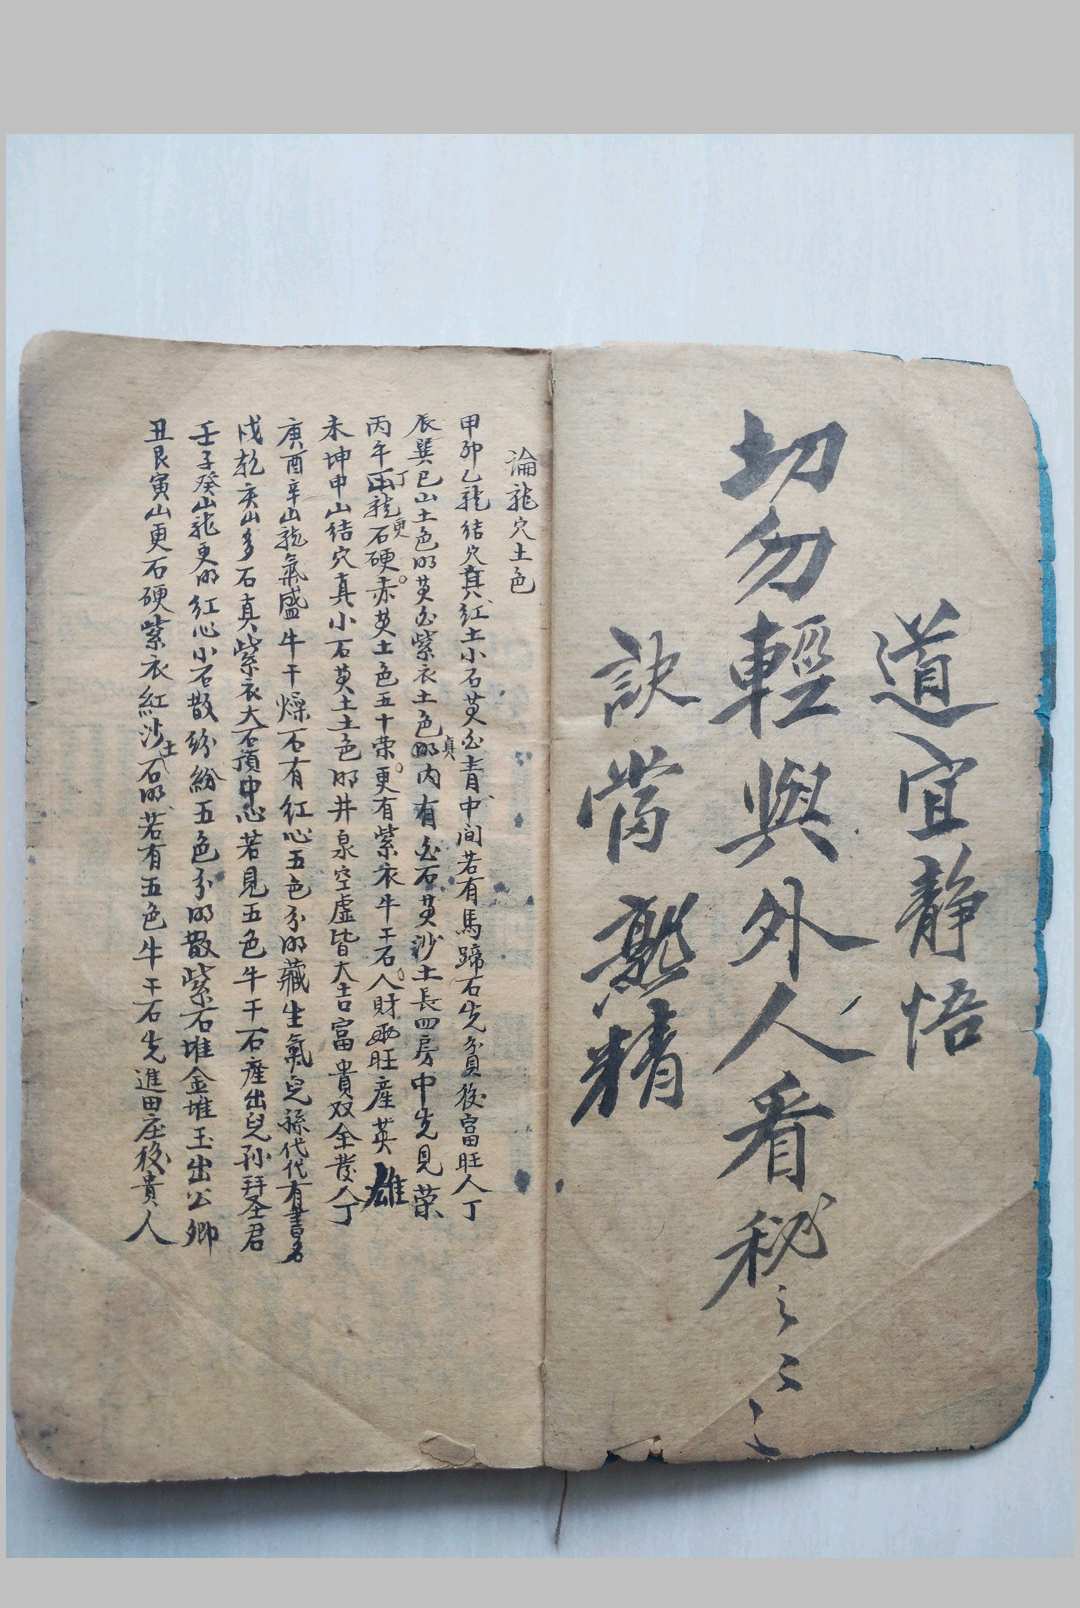 道宜静悟
切勿輕與外人看秘々々々
訣當熟精
論龍穴土色
甲卯乙龍結穴真红土小石黄白青中间若有馬蹄石先貧後富旺人丁
辰巽巳山土色明黄白紫衣土色明真内有白石黄沙土長四房中先見荣
丙午丁龍石硬更赤黄土色五十荣更有紫衣牛干石人財两旺産英雄
未坤申山结穴真小石黄土土色明井泉空虚皆大吉富貴双全發人丁
庚酉辛山龍氣盛牛干燥石有红心五色分明藏生氣兒孫代代有書名
戌乾亥山多石真紫衣大石頂中心若見五色牛干石産出兒孙拜圣君
壬子癸山龍更明红心小石散纷紛五色分明散紫石堆金堆玉出公卿
丑艮寅山更石硬紫衣紅沙土石明若有五色牛干石先進田庄後貴人